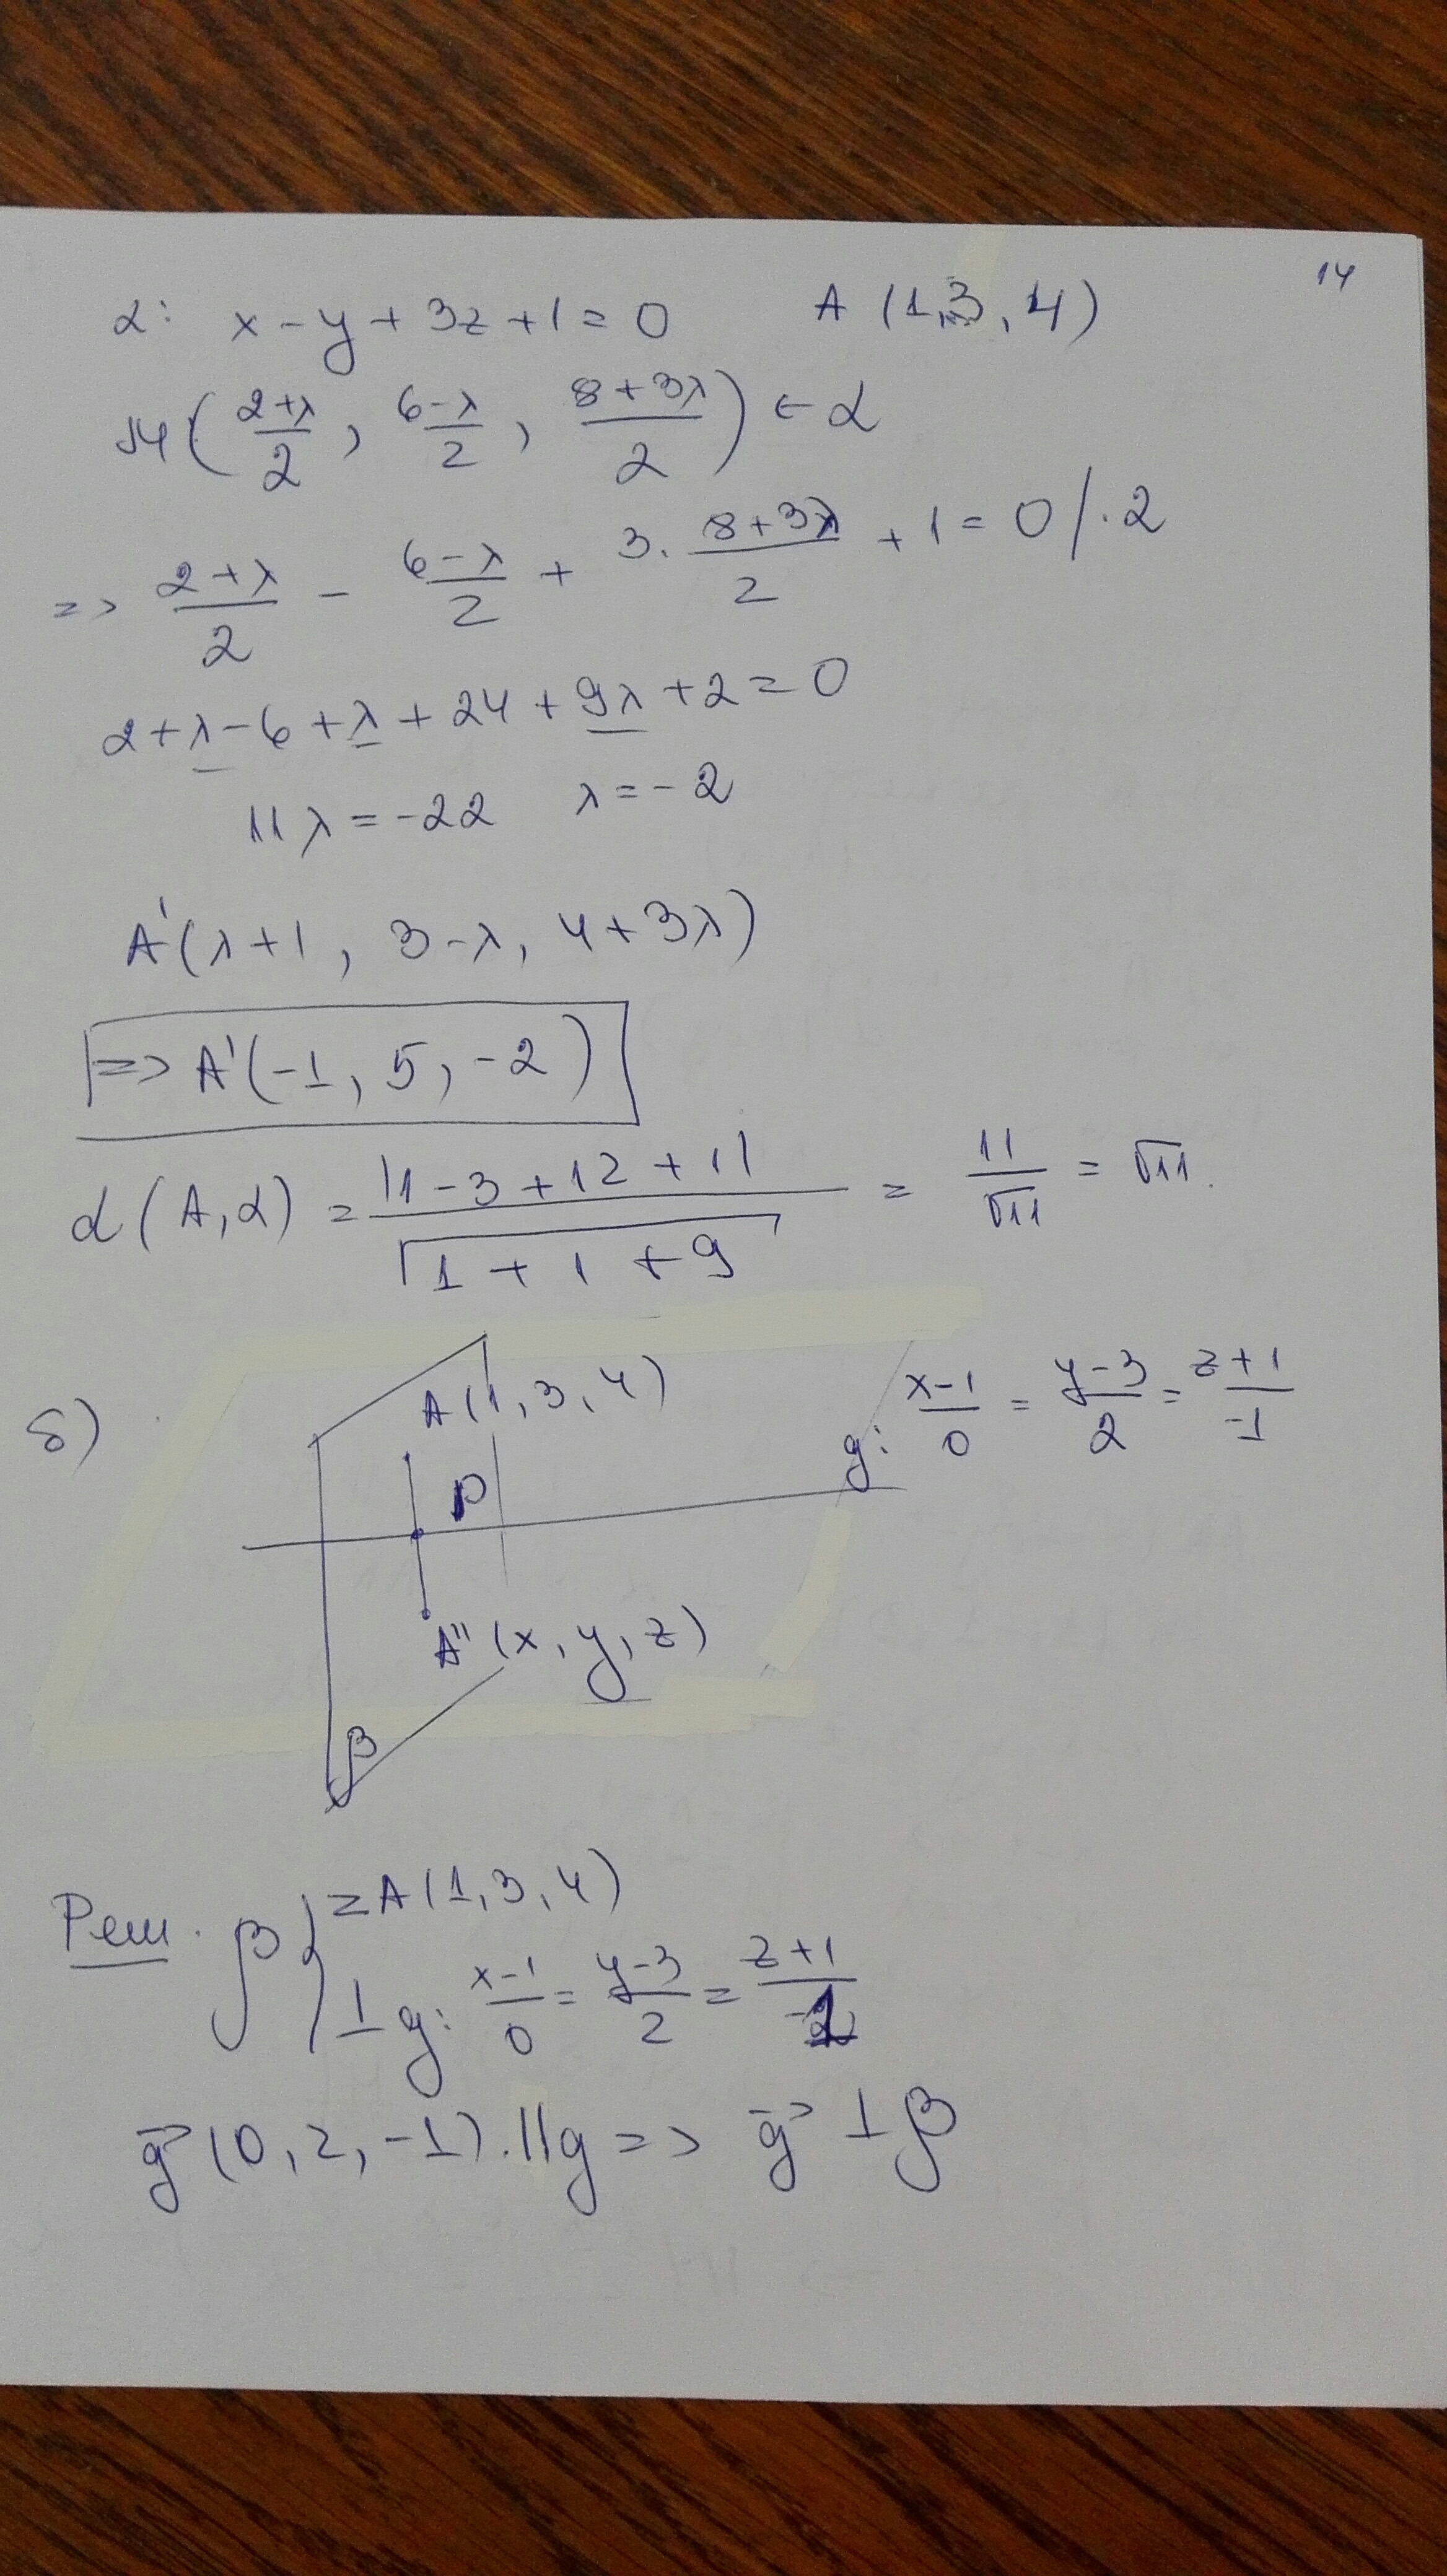 14
α: x - y + 3z + 1 = 0 A (1,3,4)
M( (2+λ)/2 , (6-λ)/2 , (8+3λ)/2 ) ∈ α
=> (2+λ)/2 - (6-λ)/2 + 3. (8+3λ)/2 + 1 = 0 /.2
2+λ-6+λ+24+9λ+2=0
11λ = -22 λ = -2
A'(λ+1, 3-λ, 4+3λ)
=> A'(-1, 5, -2)
d(A,α) = |1-3+12+1| / √(1+1+9) = 11/√11 = √11.
б)
A(1,3,4)
g: (x-1)/0 = (y-3)/2 = (z+1)/-1
P
A"(x, y, z)
β
Реш. β { Z A(1,3,4)
⊥ g: (x-1)/0 = (y-3)/2 = (z+1)/-1
g⃗ (0, 2, -1). || g => g⃗ ⊥ β